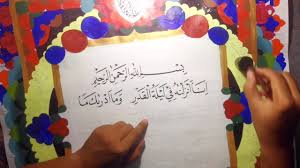 بِسْمِ اللهِ الرَّحْمٰنِ الرَّحِيْمِ
إِنَّا أَنْزَلْنٰهُ فِيْ لَيْلَةِ الْقَدْرِ وَمَا أَدْرٰىكَ مَا